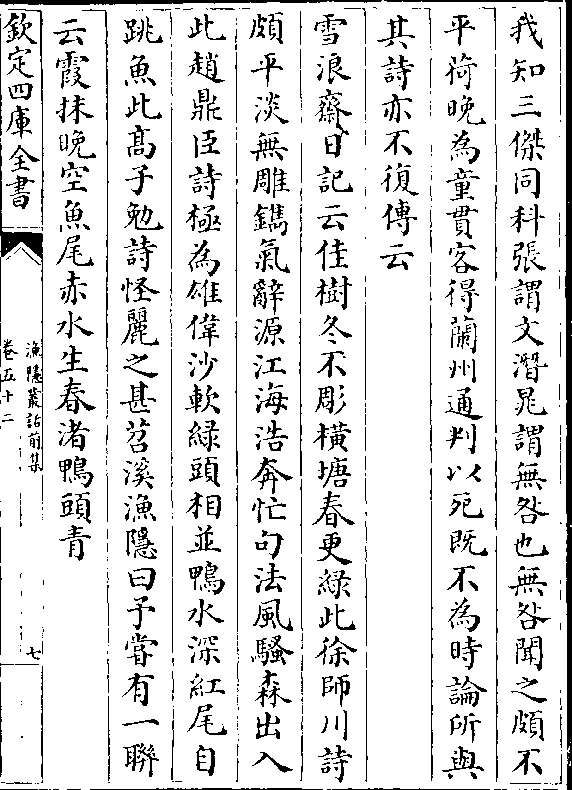 我知三傑同科張謂文潛晁謂無咎也無咎聞之頗不
平荷晚為童貫客得蘭州通判以死既不為時論所與
其詩亦不復傳云
雪浪齋日記云佳樹冬不彫橫塘春更綠此徐師川詩
頗平淡無雕鐫氣辭源江海浩奔忙句法風騷森出入
此趙鼎臣詩極為雄偉沙軟綠頭相並鴨水深紅尾自
跳魚此髙子勉詩怪麗之甚苕溪漁隱曰予嘗有一聯
云霞抹晚空魚尾赤水生春渚鴨頭青
欽定四庫全書
漁隱叢話前集
卷五十二
七